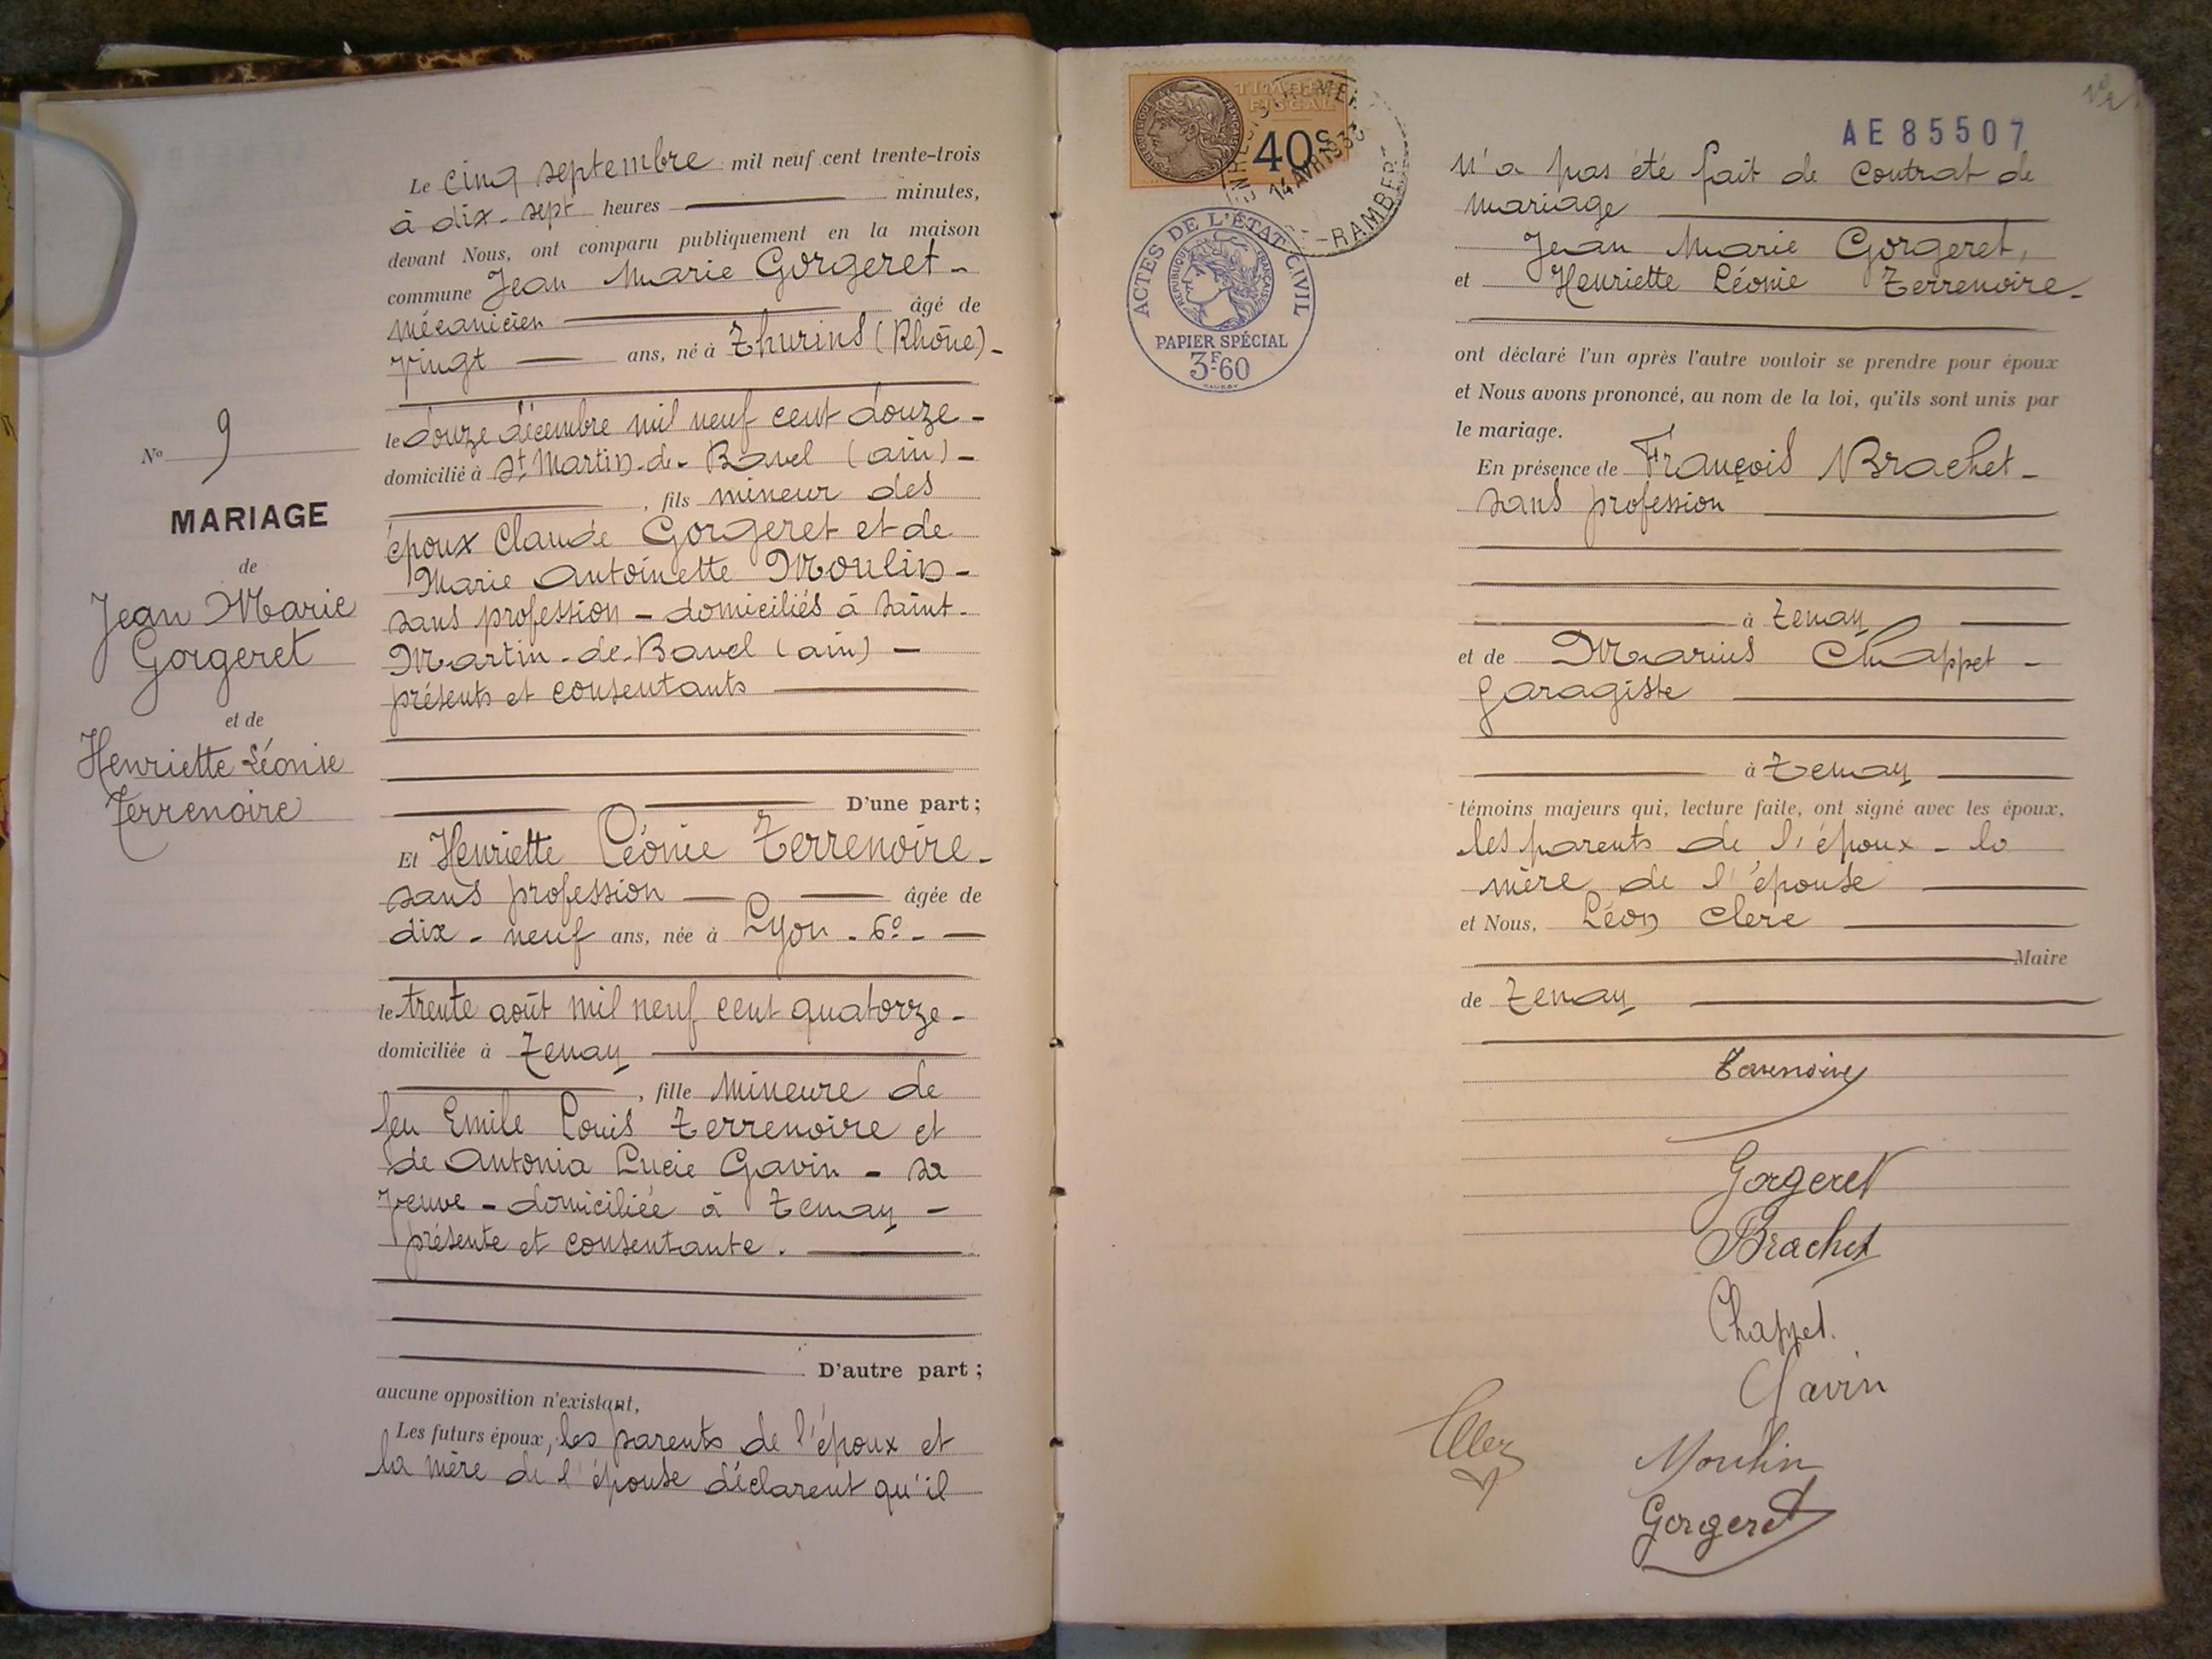 N° 9
MARIAGE
de
Jean Marie
Gorgeret
et de
Henriette Léonie
Terrenoire
Le cinq septembre mil neuf cent trente-trois
à dix-sept heures minutes,
devant Nous, ont comparu publiquement en la maison
commune Jean Marie Gorgeret -
mécanicien âgé de
vingt ans, né à Thurins (Rhône) -
le douze décembre mil neuf cent douze -
domicilié à St Martin-de-Bavel (ain) -
, fils mineur des
époux Claude Gorgeret et de
Marie Antoinette Moulin -
sans profession - domiciliés à Saint-
Martin-de-Bavel (ain) -
présents et consentants
D'une part ;
Et Henriette Léonie Terrenoire -
sans profession âgée de
dix-neuf ans, née à Lyon - 6e -
le trente août mil neuf cent quatorze -
domiciliée à Tenay
, fille mineure de
feu Emile Louis Terrenoire et
de Antonia Lucie Gavin - sa
veuve - domiciliée à Tenay -
présente et consentante.
D'autre part ;
aucune opposition n'existant,
Les futurs époux, les parents de l'époux et
la mère de l'épouse déclarent qu'il
TIMBRE
FISCAL
40c
14 AVR 1933
RAMBERT
ACTES DE L'ÉTAT CIVIL
RÉPUBLIQUE FRANÇAISE
PAPIER SPÉCIAL
3F60
AE 85507
n'a pas été fait de contrat de
mariage
Jean Marie Gorgeret,
et Henriette Léonie Terrenoire -
ont déclaré l'un après l'autre vouloir se prendre pour époux
et Nous avons prononcé, au nom de la loi, qu'ils sont unis par
le mariage.
En présence de François Brachet -
sans profession
à Tenay
et de Marius Chappet -
garagiste
à Tenay
témoins majeurs qui, lecture faite, ont signé avec les époux,
les parents de l'époux - la
mère de l'épouse
et Nous, Léon Clerc
Maire
de Tenay
Terrenoire
Gorgeret
Brachet
Chappet.
Gavin
Moulin
Gorgeret